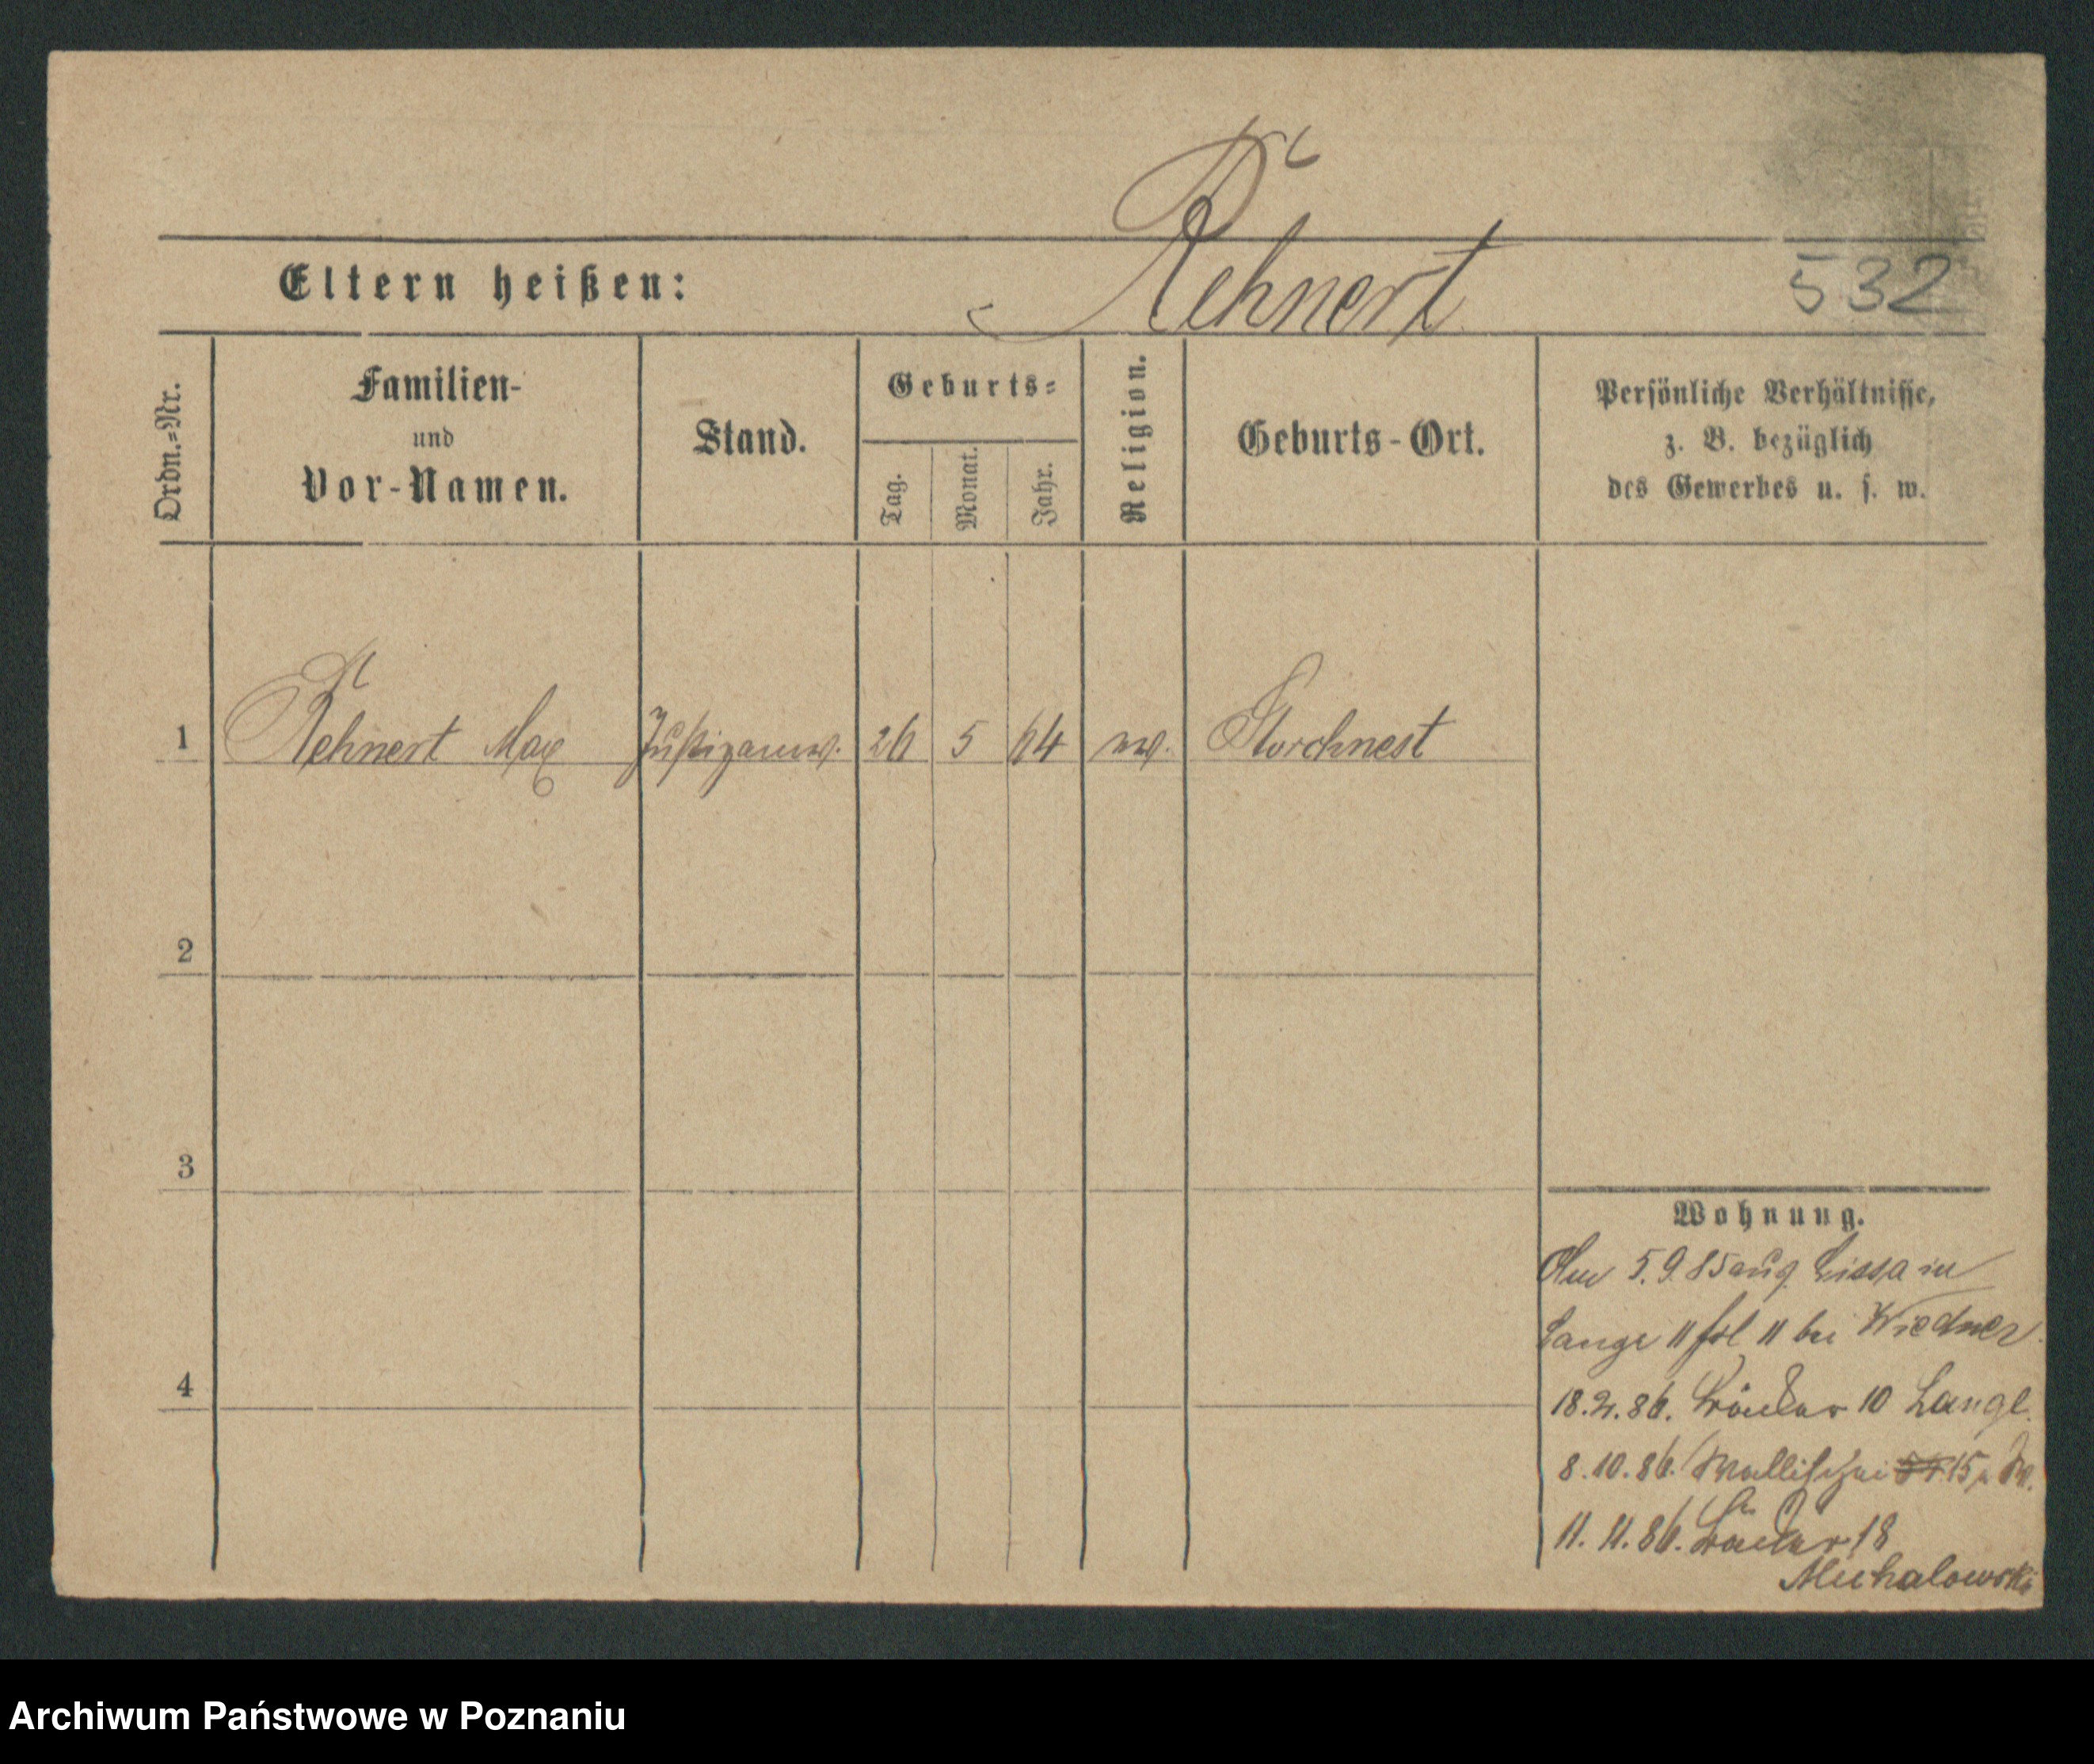 Rehnert
Eltern heißen:
532
Ordn.=Nr.
Familien-
und
Vor-Namen.
Stand.
Geburts=
Tag.
Monat.
Jahr.
Religion.
Geburts-Ort.
Persönliche Verhältnisse,
z. B. bezüglich
des Gewerbes u. s. w.
1 Rehnert Max Justizanw. 26 5 64 Storchnest
2
3
4
Wohnung.
5.9.85 Lissa in
Lange 11 bei Wiedner
86. 10 Langl.
8.10.86. Wallischei 15
11.11.86. 18
Michalowski
Archiwum Państwowe w Poznaniu